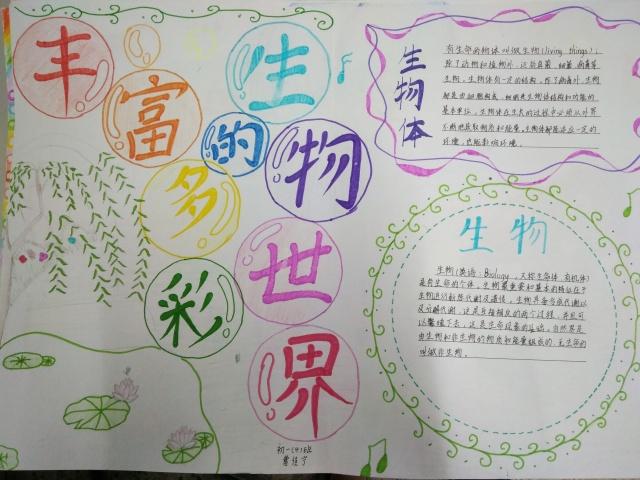 丰富多彩
的
生物世界
生物体
有生命的物体叫做生物体(living things),
除了动物和植物外，还包含真菌、细菌、病毒等
生物，生物体有一定的结构，除了病毒外，生物
都是由细胞构成，细胞是生物体结构和功能的
基本单位，生物体在生长的过程中必须从外界
不断地获取物质和能量，生物体都能适应一定的
环境，也能影响环境。
生物
生物(英语：Biology，又称生命体、有机体)
是有生命的个体，生物最重要和基本的特征在于
生物进行新陈代谢及遗传，生物具备合成代谢以
及分解代谢，这是互相相反的两个过程，并且可
以繁殖下去，这是生命现象的基础，自然界是
由生物和非生物的物质和能量组成的，无生命的
叫做非生物。
初一